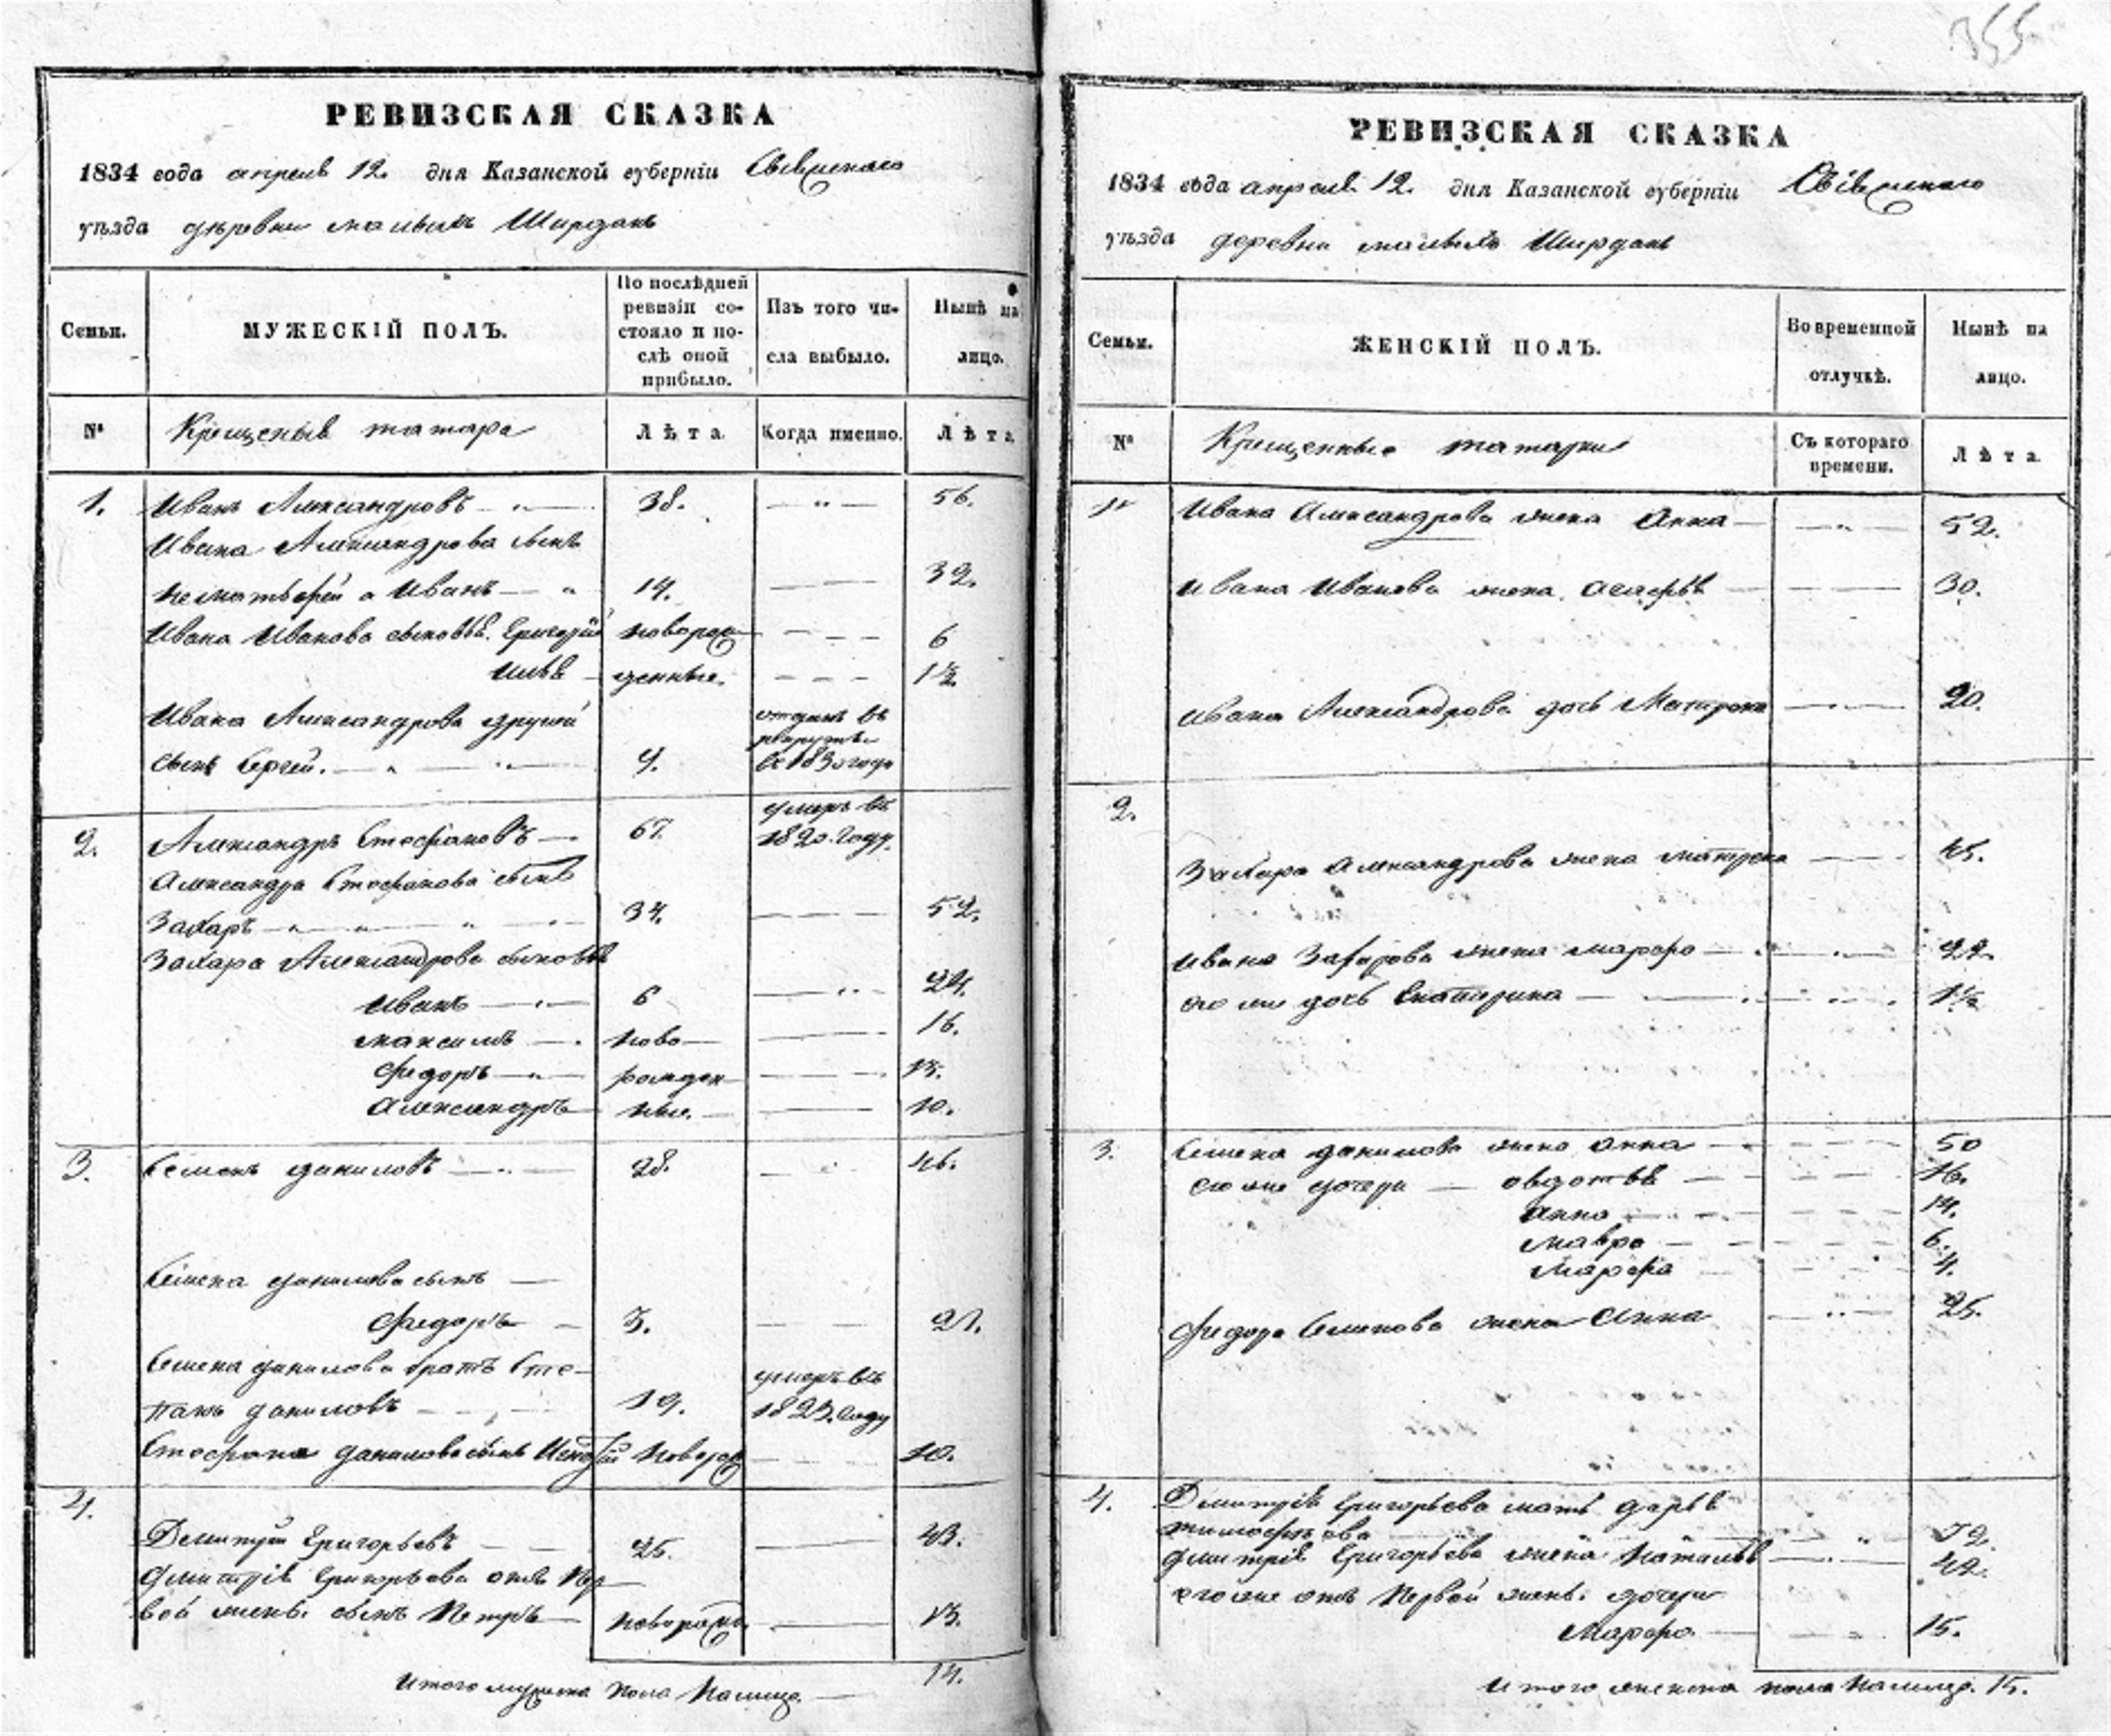 355.
РЕВИЗСКАЯ СКАЗКА
1834 года апреля 12. дня Казанской губерніи Свіяжскаго
уѣзда деревни малыхъ Ширданъ
Семьи.
МУЖЕСКІЙ ПОЛЪ.
По послѣдней ревизіи состояло и послѣ оной прибыло.
Изъ того числа выбыло.
Нынѣ на лицо.
№
Крещеныя татара
Лѣта.
Когда именно.
Лѣта
1. Иванъ Александровъ 38. 56.
Ивана Александрова сынъ
Иванъ 14. 32.
Ивана Иванова сыновья. Григорій новорож 6
Илья денные. 1½
Ивана Александрова другой отданъ въ рекруты
сынъ Сергей. 9. въ 1830 году
2. Александръ Стефановъ 67. умеръ въ 1820. году.
Александра Стефанова сынъ
Захаръ 34. 52.
Захара Александрова сыновья
Иванъ 6 24.
Максимъ ново 16.
Федоръ рожден 13.
Александръ ные. 10.
3. Семенъ Даниловъ 28. 46.
Семена Данилова сынъ
Федоръ 3. 21.
Семена Данилова братъ Сте- умеръ въ
панъ Даниловъ 19. 1823. году
Стефана Данилова сынъ новорож 10.
4.
Дмитрей Григорьевъ 25. 43.
Дмитрія Григорьева отъ пер
вой жены. сынъ Петръ новорож 13.
Итого мужеска пола налицо. 14.
РЕВИЗСКАЯ СКАЗКА
1834 года апреля 12. дня Казанской губерніи Свіяжскаго
уѣзда деревни малыхъ Ширданъ
Семьи.
ЖЕНСКІЙ ПОЛЪ.
Во временной отлучкѣ.
Нынѣ на лицо.
№
Крещенные татарки
Съ котораго времени.
Лѣта
1. Ивана Александрова жена Анна 52.
Ивана Иванова жена 30.
Ивана Александрова дочь Матрена 20.
2.
Захара Александрова жена Матрена 45.
Ивана Захарова жена Марфа 22.
его же дочь Екатерина 1½
3. Семена Данилова жена Анна 50
его же дочери Овдотья 16.
Анна 14.
Мавра 6.
Марфа 4.
Федора Семенова жена Анна 25.
4. Дмитрія Григорьева мать Дарья
Тимофеева 72.
Дмитрія Григорьева жена Наталья 42.
его же отъ первой жены. дочери
Марфа 15.
Итого женска пола налицо. 15.